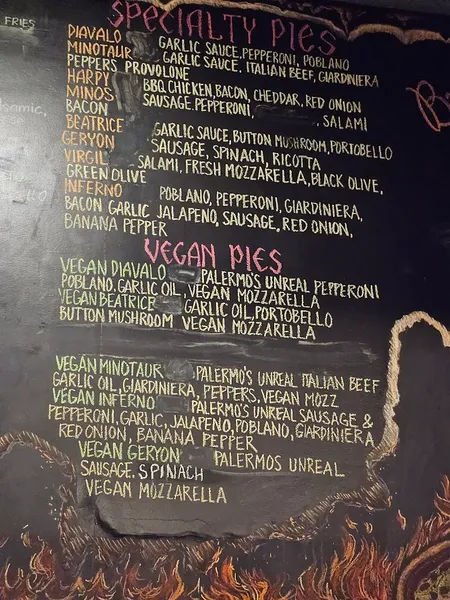 FRIES
SPECIALTY PIES
DIAVALO GARLIC SAUCE, PEPPERONI, POBLANO
MINOTAUR GARLIC SAUCE, ITALIAN BEEF, GIARDINIERA
PEPPERS PROVOLONE
HARPY BBQ CHICKEN, BACON, CHEDDAR, RED ONION
MINOS SAUSAGE, PEPPERONI, SALAMI
BACON
BEATRICE GARLIC SAUCE, BUTTON MUSHROOM, PORTOBELLO
GERYON SAUSAGE, SPINACH, RICOTTA
VIRGIL SALAMI, FRESH MOZZARELLA, BLACK OLIVE,
GREEN OLIVE
INFERNO POBLANO, PEPPERONI, GIARDINIERA,
BACON GARLIC JALAPENO, SAUSAGE, RED ONION,
BANANA PEPPER
VEGAN PIES
VEGAN DIAVALO PALERMO'S UNREAL PEPPERONI
POBLANO, GARLIC OIL, VEGAN MOZZARELLA
VEGAN BEATRICE GARLIC OIL, PORTOBELLO
BUTTON MUSHROOM VEGAN MOZZARELLA
VEGAN MINOTAUR PALERMO'S UNREAL ITALIAN BEEF
GARLIC OIL, GIARDINIERA, PEPPERS, VEGAN MOZZ
VEGAN INFERNO PALERMO'S UNREAL SAUSAGE &
PEPPERONI, GARLIC, JALAPENO, POBLANO, GIARDINIERA
RED ONION, BANANA PEPPER
VEGAN GERYON PALERMOS UNREAL
SAUSAGE, SPINACH
VEGAN MOZZARELLA